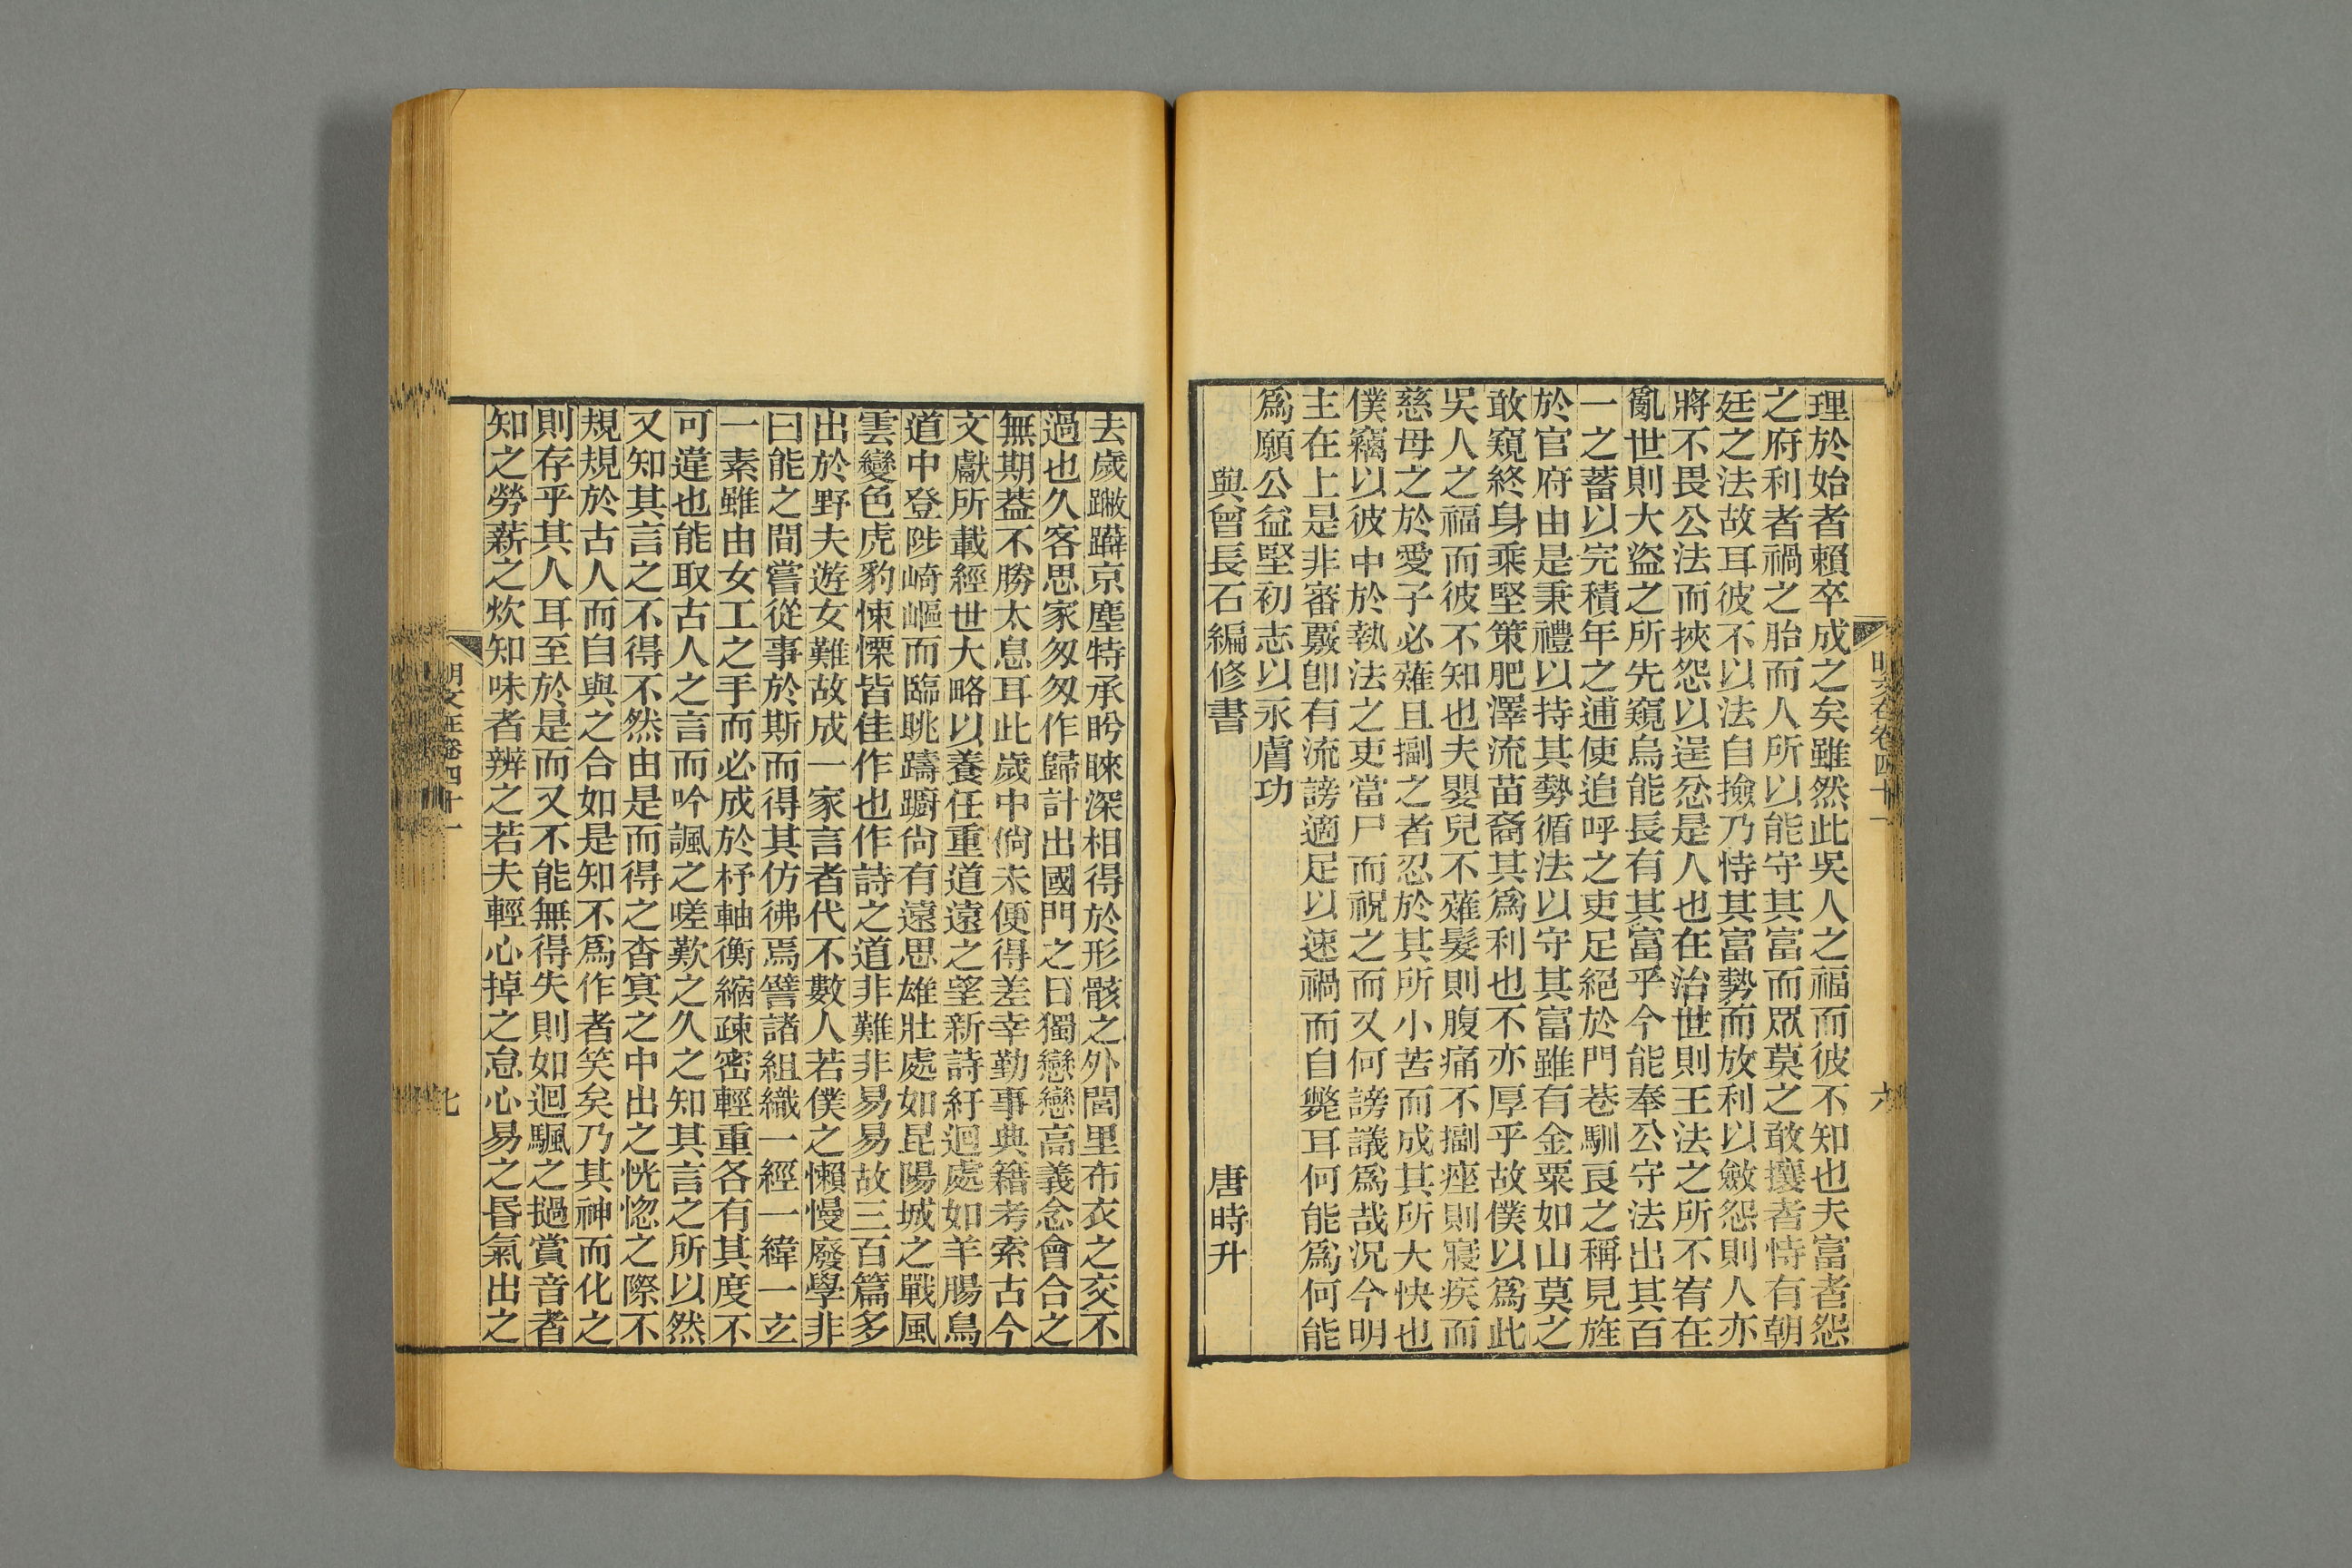 理於始者賴卒成之矣雖然此吳人之福而彼不知也夫富者怨
之府利者禍之胎而人所以能守其富而眾莫之敢攘者恃有朝
廷之法故耳彼不以法自撿乃恃其富勢而放利以斂怨則人亦
將不畏公法而挾怨以逞忿是人也在治世則王法之所不宥在
亂世則大盜之所先窺烏能長有其富乎今能奉公守法出其百
一之蓄以完積年之逋使追呼之吏足絕於門巷馴良之稱見旌
於官府由是秉禮以持其勢循法以守其富雖有金粟如山莫之
敢窺終身乘堅策肥澤流苗裔其爲利也不亦厚乎故僕以爲此
吳人之福而彼不知也夫嬰兒不薙髮則腹痛不擶痤則寢疾而
慈母之於愛子必薙且擶之者忍於其所小苦而成其所大快也
僕竊以彼中於執法之吏當尸而祝之而又何謗議爲哉況今明
主在上是非審覈卽有流謗適足以速禍而自斃耳何能爲何能
爲願公益堅初志以永膚功
與曾長石編修書 唐時升
明文在卷四十一 六
去歲蹩躠京塵特承盻睞深相得於形骸之外閭里布衣之交不
過也久客思家匆匆作歸計出國門之日獨戀戀高義念會合之
無期葢不勝太息耳此歲中倘未便得差幸勤事典籍考索古今
文獻所載經世大略以養任重道遠之望新詩紆迴處如羊腸鳥
道中登陟崎嶇而臨眺躊躕尙有遠思雄壯處如昆陽城之戰風
雲變色虎豹悚慄皆佳作也作詩之道非難非易易故三百篇多
出於野夫遊女難故成一家言者代不數人若僕之懶慢廢學非
曰能之間嘗從事於斯而得其仿彿焉譬諸組織一經一緯一玄
一素雖由女工之手而必成於杼軸衡縮疎密輕重各有其度不
可違也能取古人之言而吟諷之嗟歎之久之知其言之所以然
又知其言之不得不然由是而得之杳冥之中出之恍惚之際不
規規於古人而自與之合如是知不爲作者笑矣乃其神而化之
則存乎其人耳至於是而又不能無得失則如迴颿之撾賞音者
知之勞薪之炊知味者辨之若夫輕心掉之怠心易之昏氣出之
明文在卷四十一 七